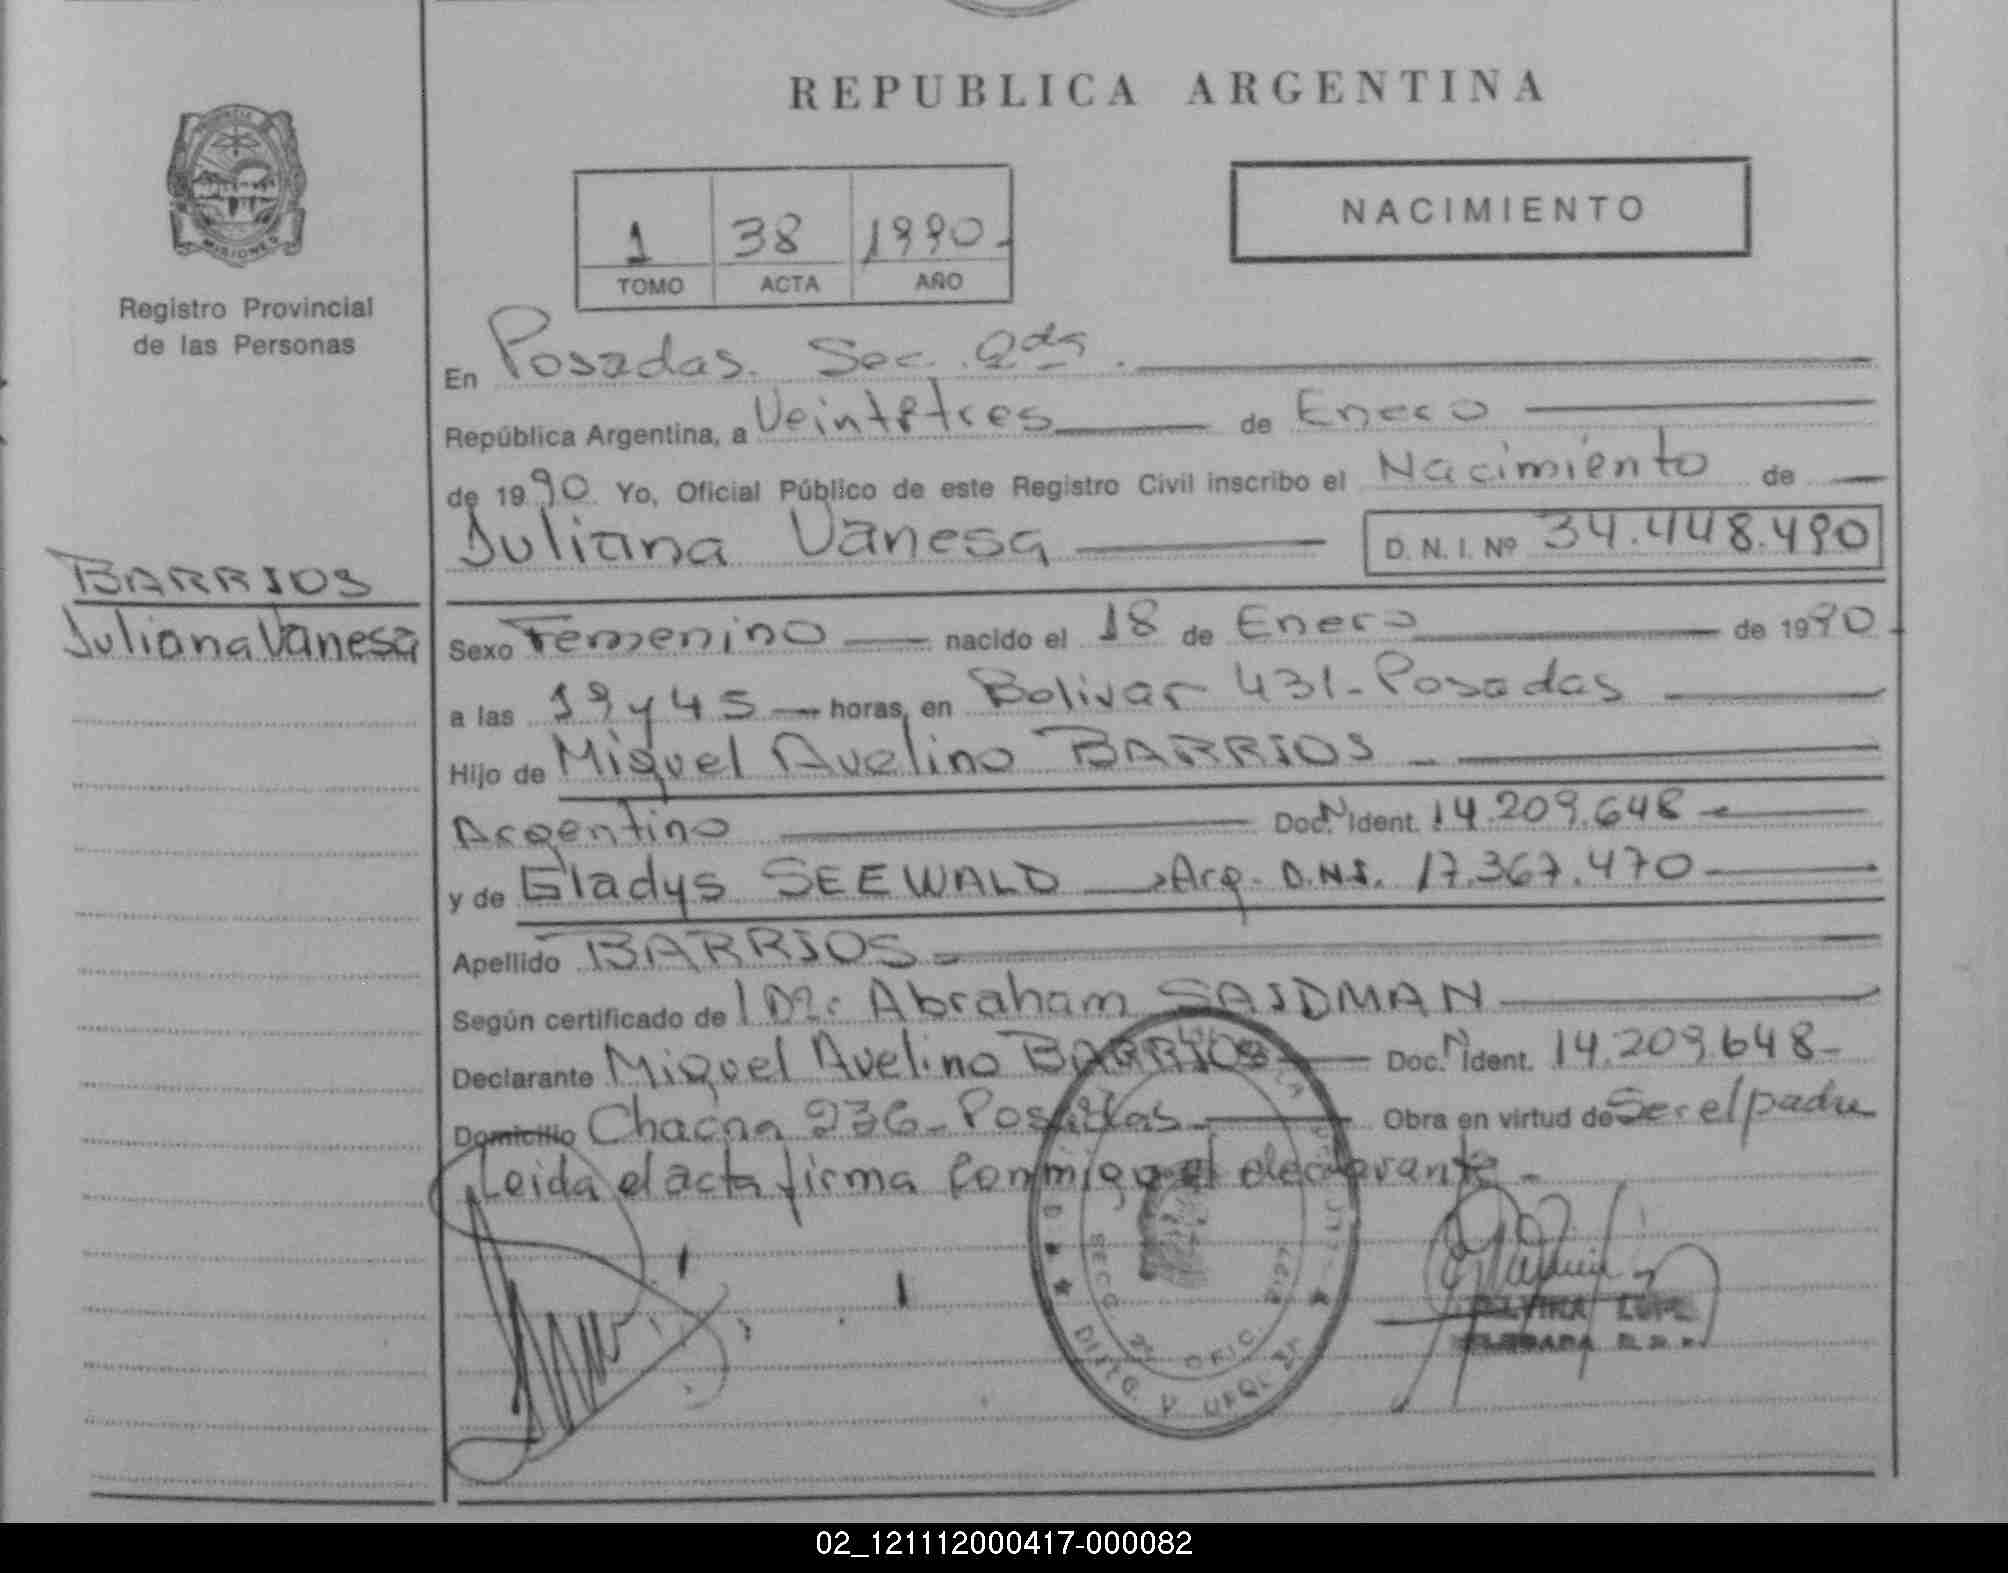 REPUBLICA ARGENTINA
MISIONES
Registro Provincial
de las Personas
NACIMIENTO
1 38 1990.
TOMO ACTA AÑO
En Posadas. Sec. 2da.
República Argentina, a Veintitres de Enero
de 1990 Yo, Oficial Público de este Registro Civil inscribo el Nacimiento de
Juliana Vanesa D. N. I. Nº 34.448.490
BARRIOS
Juliana Vanesa
Sexo Femenino nacido el 18 de Enero de 1990
a las 19 y 45 horas, en Bolivar 431 - Posadas
Hijo de Miguel Avelino BARRIOS -
Argentino Doc. N Ident. 14.209.648
y de Gladys SEEWALD Arg. D.N.I. 17.367.470
Apellido BARRIOS
Según certificado de Abraham SAIDMAN
Declarante Miguel Avelino BARRIOS Doc. N Ident. 14.209.648-
Domicilio Chacra 236 - Posadas Obra en virtud de Ser el padre
Leida el acta firma conmigo el declarante -
SECC. 2ª OFIC.
02_121112000417-000082